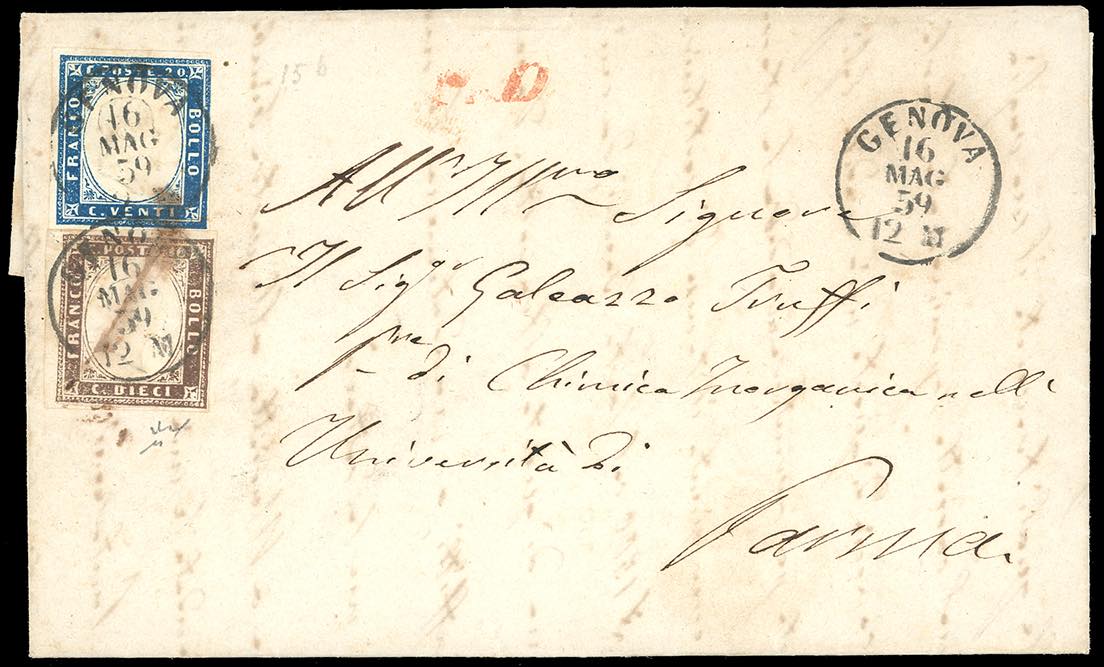 C. POSTE 20
FRANCO
BOLLO
C. VENTI
GENOVA
16
MAG
59
POSTE
FRANCO
BOLLO
C. DIECI
GENOVA
16
MAG
59
12 M
15 b
P. D
GENOVA
16
MAG
59
12 M
All' Ill.mo Signore
Il Sig.r Galeazzo Truffi
di Chimica Inorganica nell
Università di
Parma.